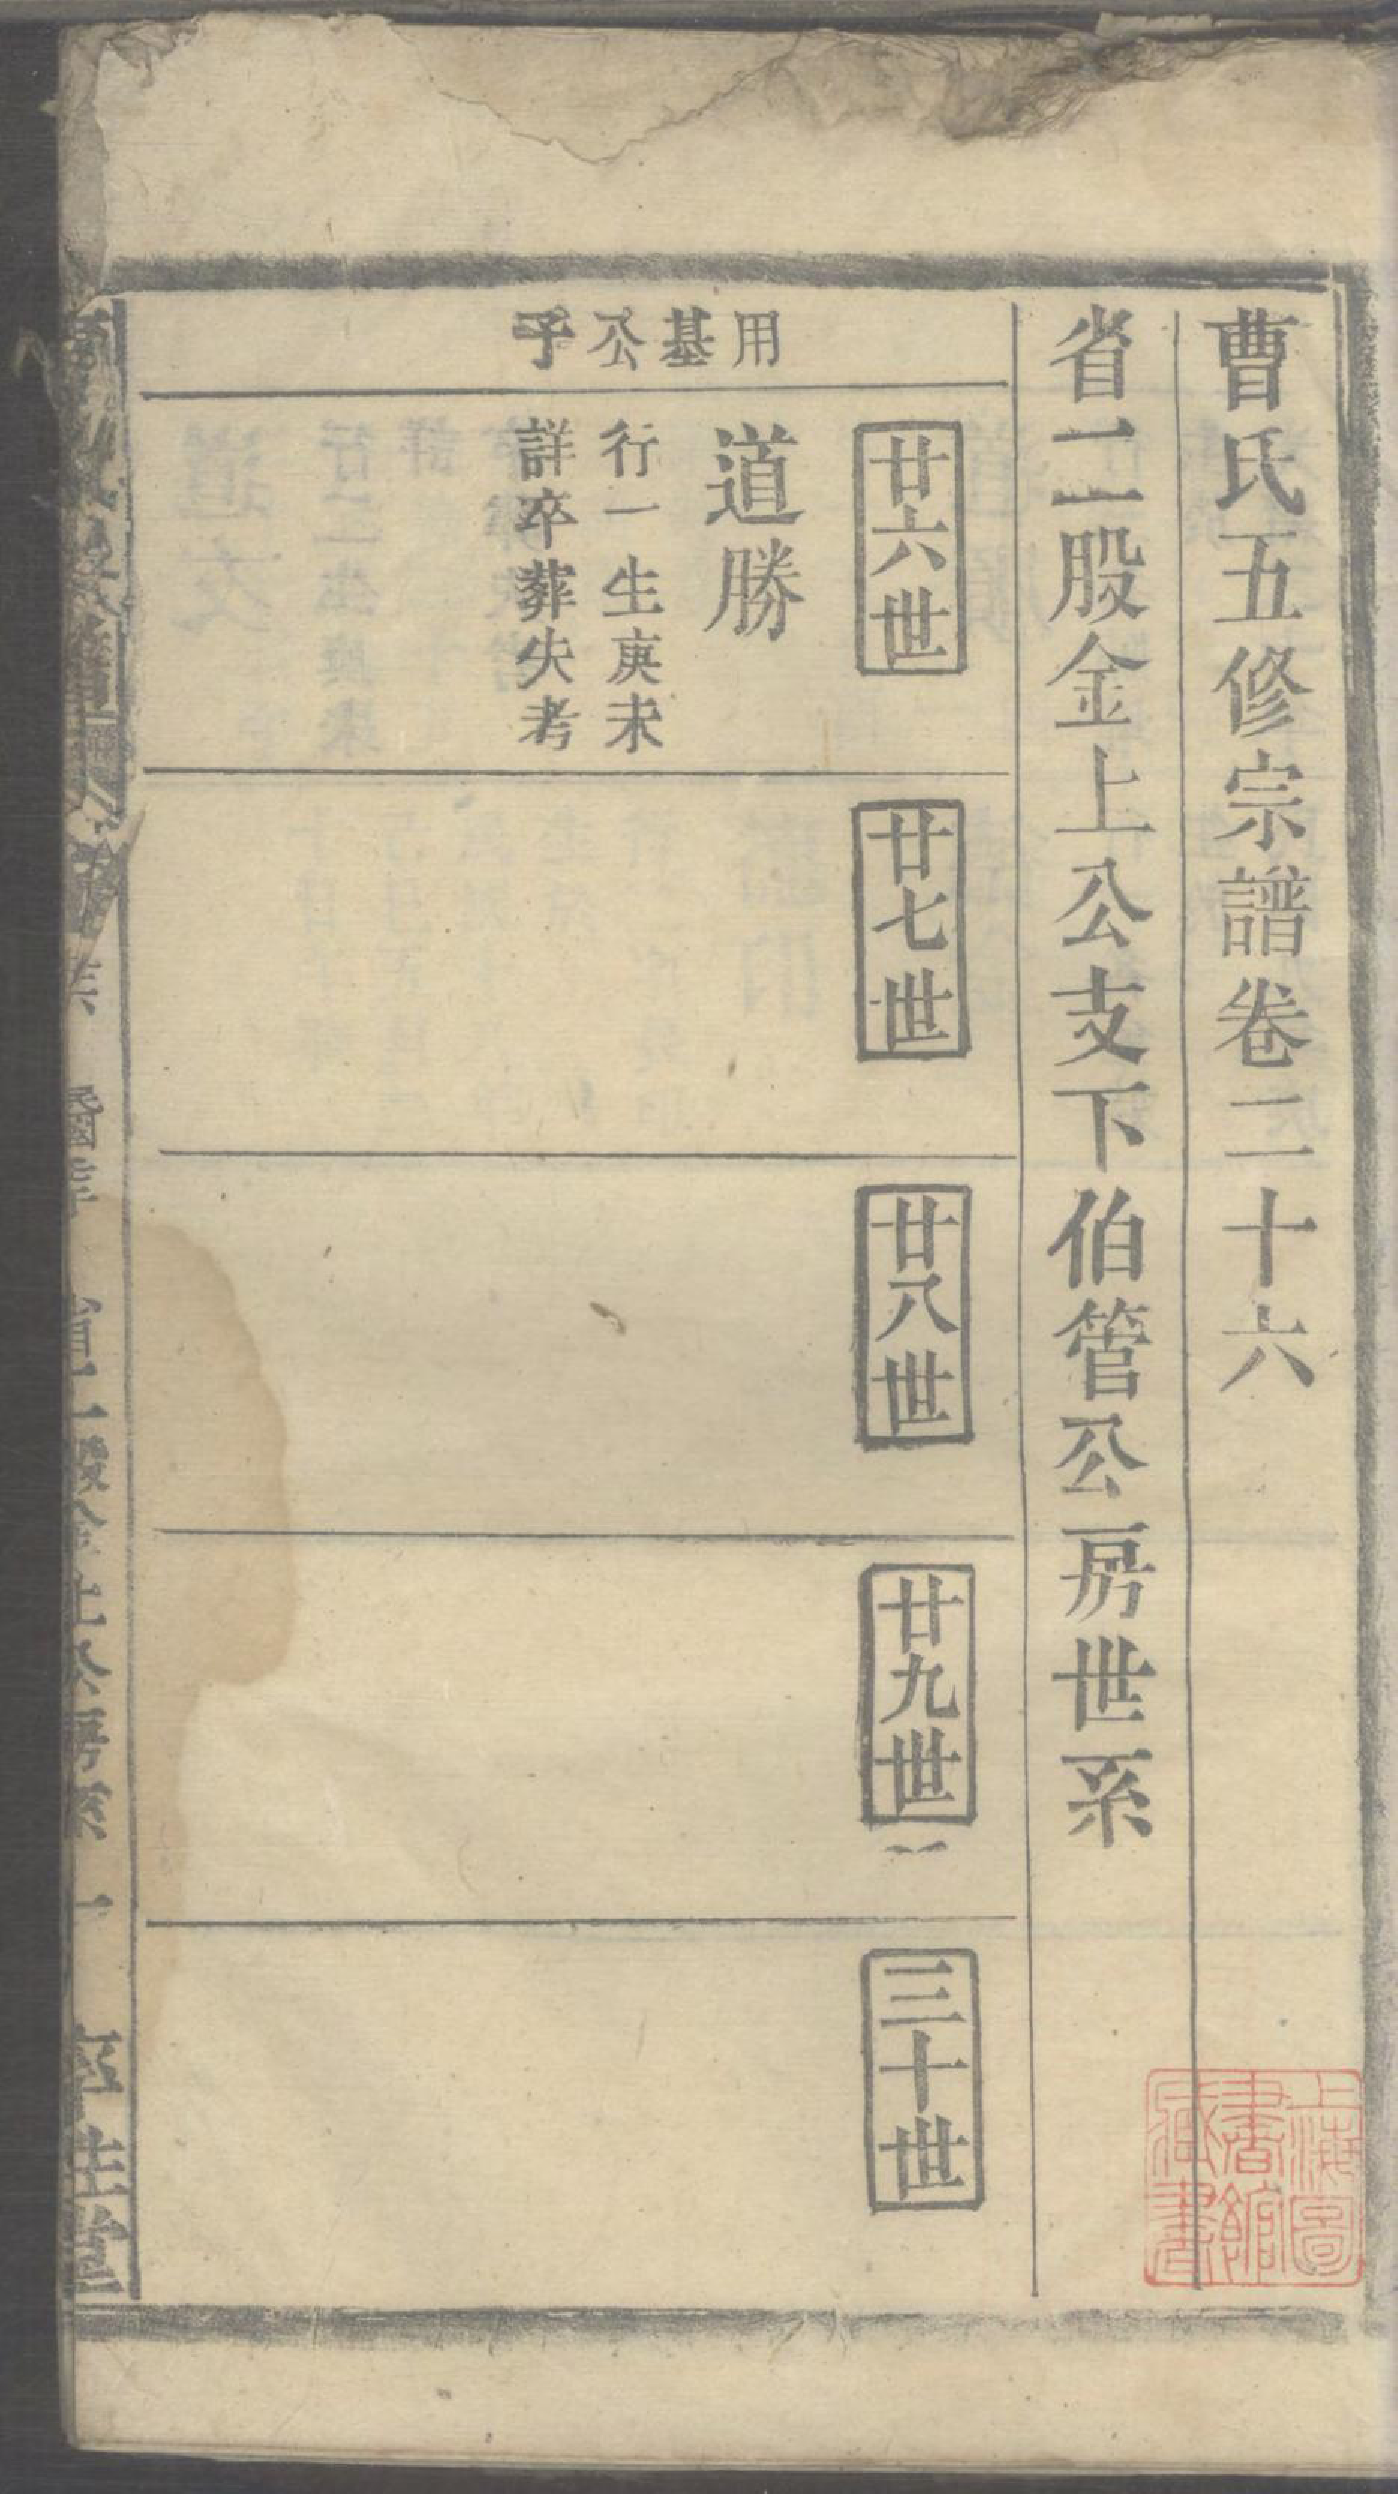 曹氏五修宗譜卷二十六
省二股金上公支下伯管公房世系
用基公予
廿六世
道勝
行一生庚未
詳卒葬失考
廿七世
廿八世
廿九世
三十世
上海圖
書館
藏書